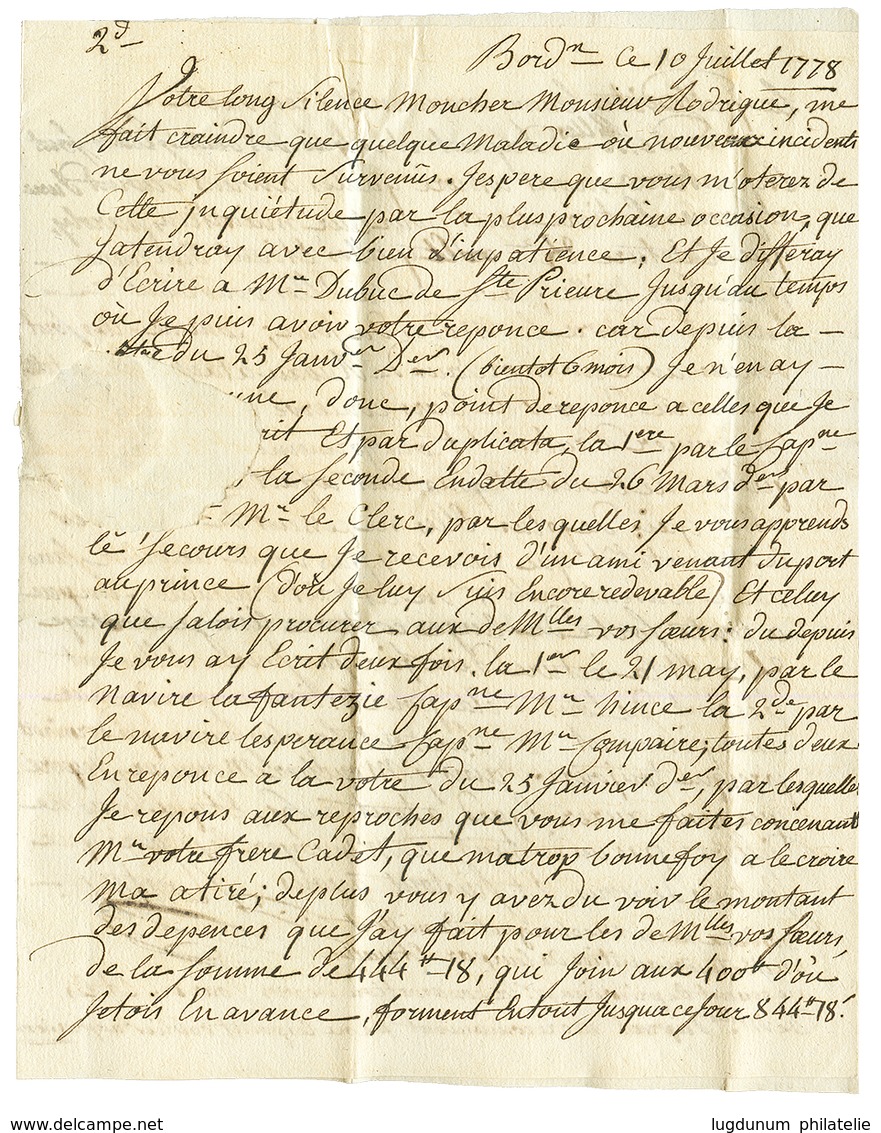 2d
Bordx ce 10 Juillet 1778
Votre long Silence Moncher Monsieur Rodrigue, me
fait craindre que quelque Maladie où nouveaux incidents
ne vous soient Survenûs. Jespere que vous m'oterez de
Cette jnquiétude par la plus prochaine occasion, que
Jatendray avec bien d'inpatience; Et Je différay
d'Ecrire a Mr Dubuc de Ste Prieure Jusqu'au temps
où Je puis avoir votre reponce. car depuis la
du 25 Janver Der. (bientot 6 mois) Je n'en ay
une, donc, point de reponce a celles que Je
rit Et par duplicata, la 1ere par le Capne
, la seconde En datte du 26 Mars der par
Mr le Clerc, par les quelles Je vous apprends
le secours que Je recevois d'un ami venant du port
au prince (d'où Je luy suis Encore redevable) Et celuy
que Jalois procurer aux deMlles vos sœurs: du depuis
Je vous ay Ecrit deux fois. la 1er le 21 may, par le
Navire la fantezie Capne Mr hince la 2de par
le navire lesperance Capne Mr Compaire; toutes deux
En reponce a la votre du 25 Janvier der, par lesquelles
Je repons aux reproches que vous me faites concenant
Mr votre frere Cadet, que ma trop bonne foy a le croire
Ma atiré; de plus vous y avez du voir le montant
des depences que J'ay fait pour les deMlles vos sœurs
de la somme de 444tt 18, qui Join aux 400tt d'où
Jetois En avance, forment Entout Jusqua ce Jour 844tt 18s
www.delcampe.net
lugdunum philatelie